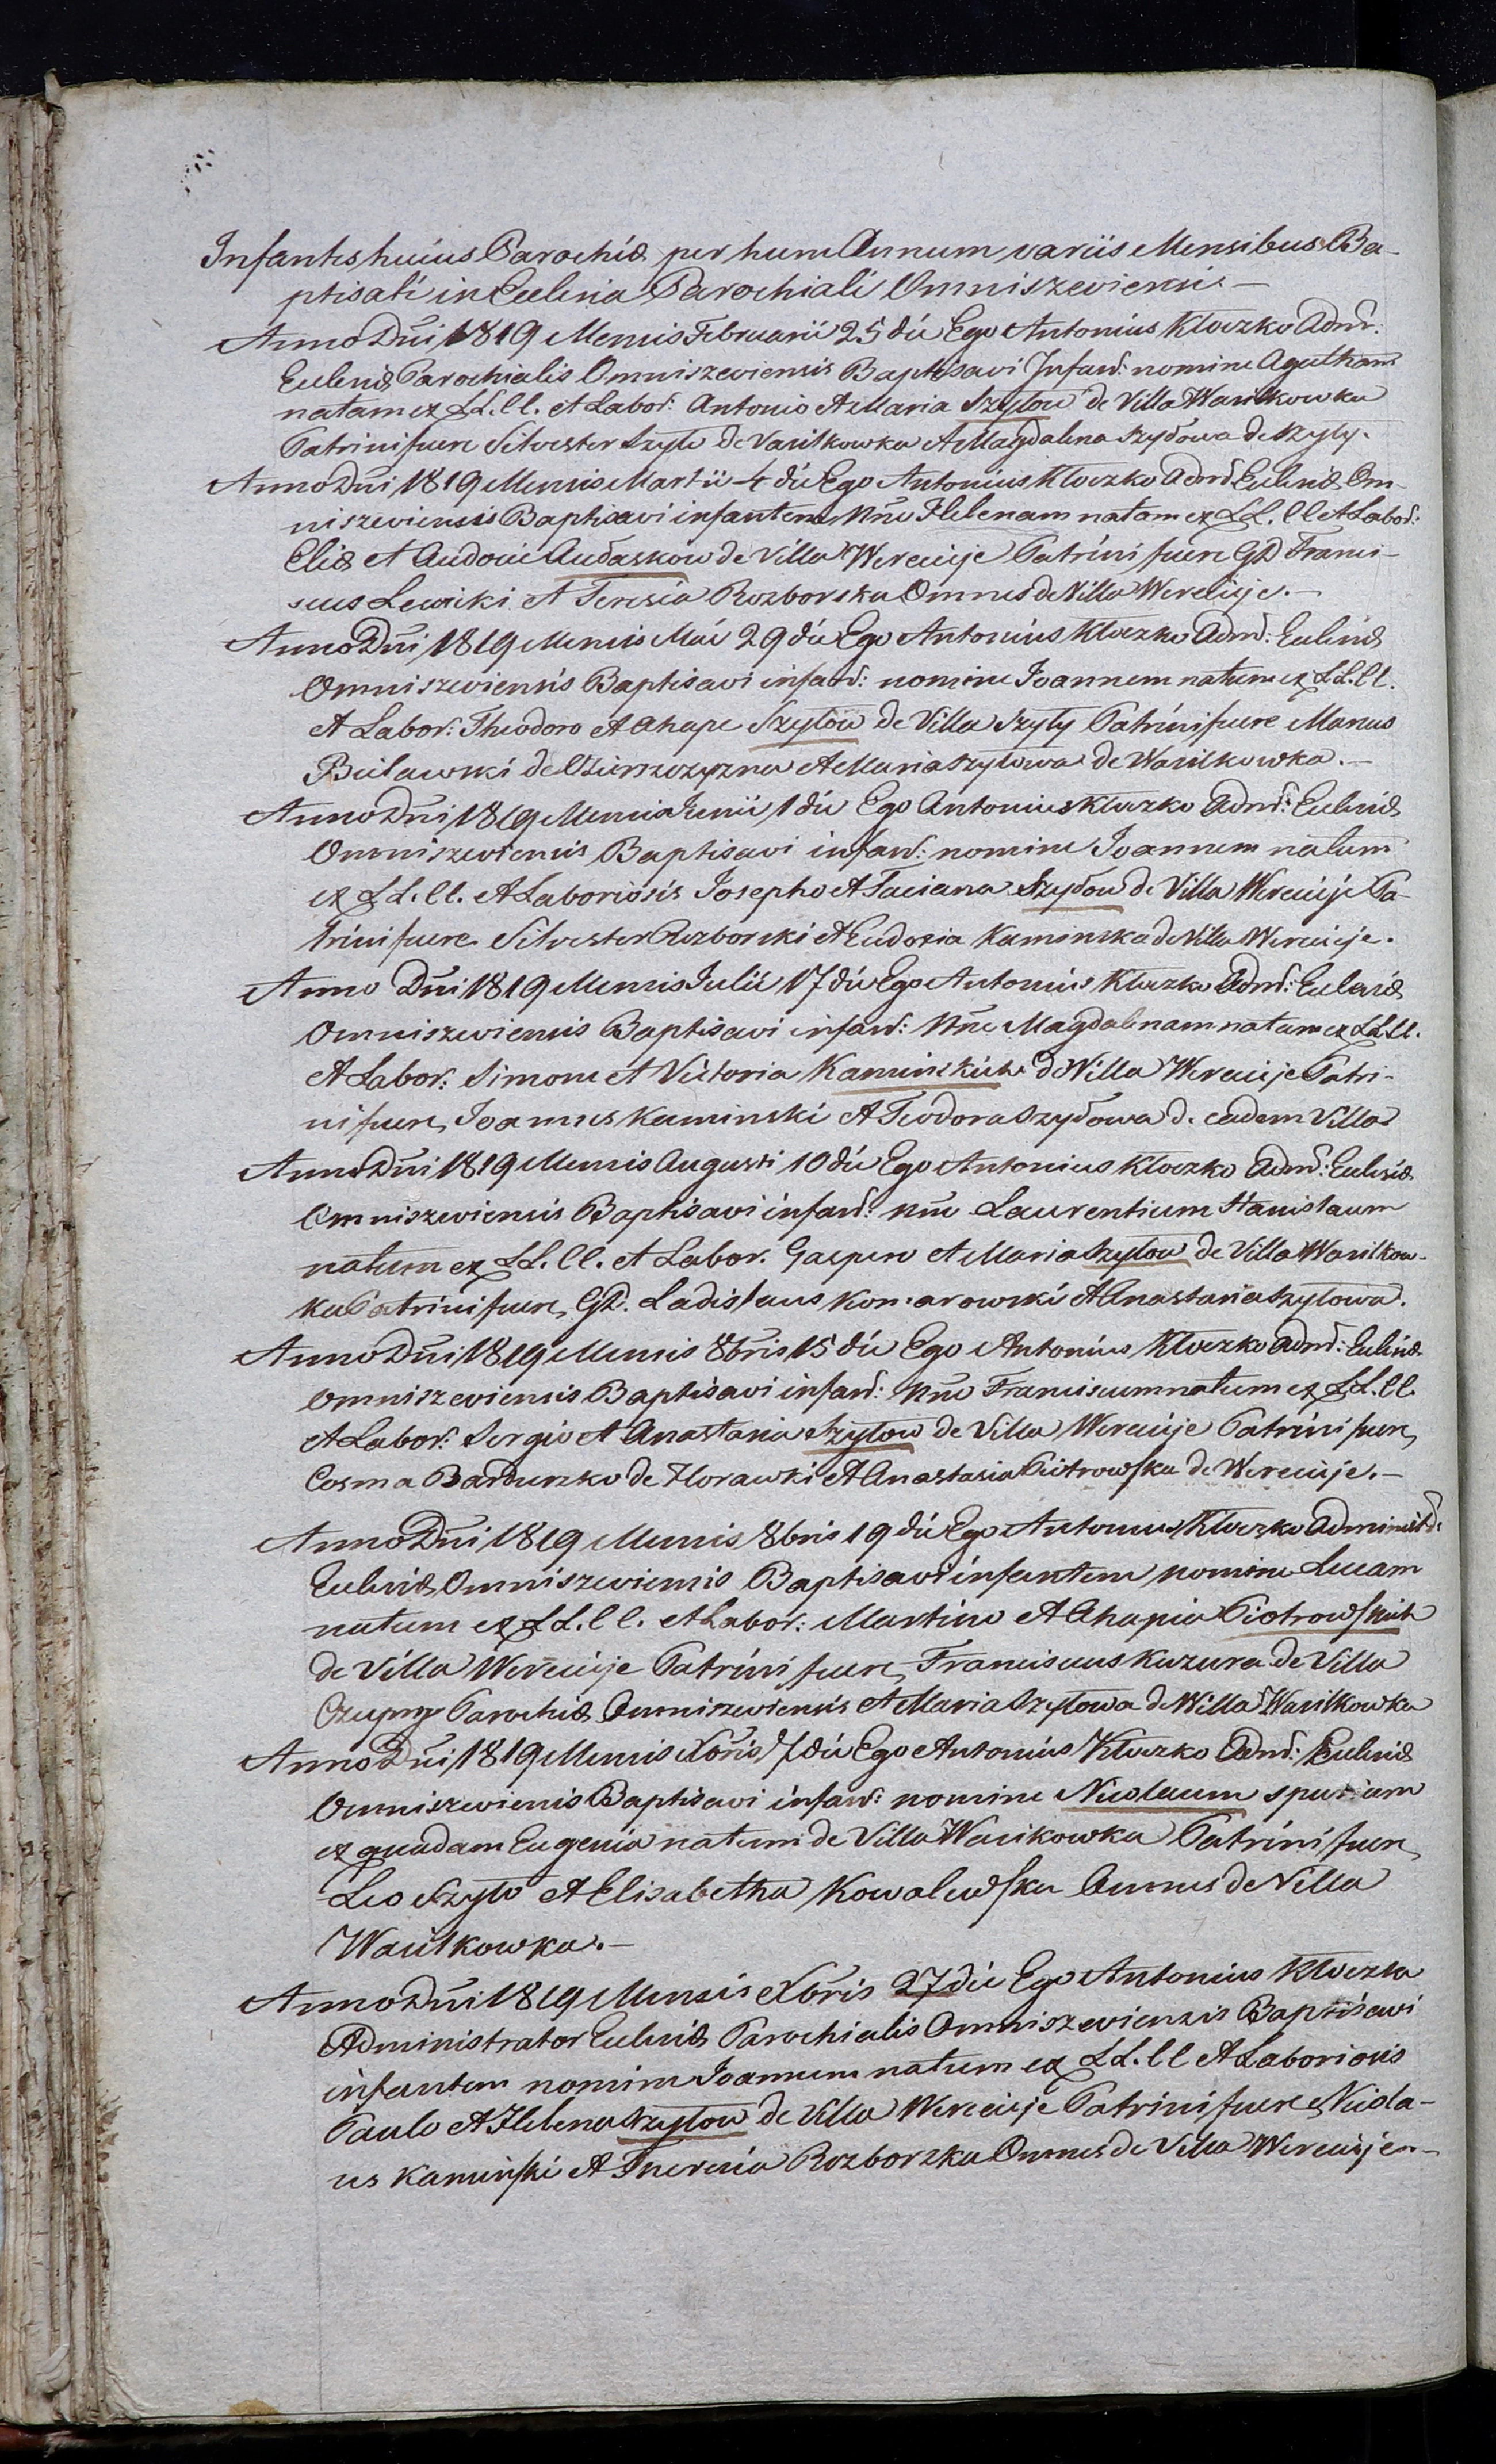 Infantes huius Parochiæ per hunc Annum variis Mensibus Ba-
ptisati in Ecclesia Parochiali Omniszeviensi.—
Anno Dñi 1819 Mensis Februarii 25 die Ego Antonius Kłoczko Admr:
Ecclesiæ Parochialis Omniszeviensis Baptisavi Infant: nomine Agatham
natam ex LL. CC. et Labor: Antonio et Maria Szyłow de Villa Wasilkowka
Patrini fuere Silvester Szyło de Vasilkowka et Magdalena Szyłowa de Szyły.
Anno Dñi 1819 Mensis Martii 4 die Ego Antonius Kłoczko Admr Ecclesiæ Om-
niszeviensis Baptisavi infantem Nñe Helenam natam ex LL. CC et Labor:
Eliæ et Audocie Audaskow de Villa Werecieje Patrini fuere GD Franci-
scus Lewicki et Teresia Rozborska Omnes de Villa Werecieje.—
Anno Dñi 1819 Mensis Mai 29 die Ego Antonius Kłoczko Admr: Ecclesiæ
Omniszeviensis Baptisavi infant: nomine Joannem natum ex LL. CC.
et Labor: Theodoro et Ahape Szyłow de Villa Szyły Patrini fuere Marcus
Buławski de et Maria Szyłowa de Wasilkowka.—
Anno Dñi 1819 Mensis Junii 1 die Ego Antonius Kłoczko Admr: Ecclesiæ
Omniszeviensis Baptisavi infant: nomine Joannem natum
ex LL. CC. et Laboriosis Josepho et Taciana Szyłow de Villa Werecieje Pa-
trini fuere Silvester Rozborski et Eudoxia Kaminska de Villa Werecieje.
Anno Dñi 1819 Mensis Julii 17 die Ego Antonius Kłoczko Admr: Ecclesiæ
Omniszeviensis Baptisavi infant: Nñe Magdalenam natam ex LL. CC.
et Labor: Simone et Victoria Kaminskich de Villa Werecieje Patri-
ni fuere Joannes Kaminski et Teodora Szyłowa de eadem Villa
Anno Dñi 1819 Mensis Augusti 10 die Ego Antonius Kłoczko Admr: Ecclesiæ
Omniszeviensis Baptisavi infant: Nñe Laurentium Stanislaum
natum ex LL. CC. et Labor. Gaspero et Maria Szyłow de Villa Wasilkow-
ka Patrini fuere GD. Ladislaus Komarowski et Anastasia Szyłowa.
Anno Dñi 1819 Mensis 8bris 15 die Ego Antonius Kłoczko Admr: Ecclesiæ
Omniszeviensis Baptisavi infant: Nñe Franciscum natum ex LL. CC.
et Labor: Sergio et Anastasia Szyłow de Villa Werecieje Patrini fuere
Cosma Barduszko de Horawki et Anastasia Piotrowska de Werecieje.—
Anno Dñi 1819 Mensis 8bris 19 die Ego Antonius Kłoczko Administr:
Ecclesiæ Omniszeviensis Baptisavi infantem nomine Lucam
natum ex LL. CC. et Labor: Martino et Ahapia Piotrowskich
de Villa Werecieje Patrini fuere Franciscus Kuzura de Villa
Parochiæ Omniszeviensis et Maria Szyłowa de Villa Wasilkowka
Anno Dñi 1819 Mensis Xbris 7 die Ego Antonius Kłoczko Admr: Ecclesiæ
Omniszevienis Baptisavi infant: nomine Nicolaum spurium
ex quadam Eugenia natum de Villa Wasikowka Patrini fuere
Leo Szyło et Elisabetha Kowalewska Omnes de Villa
Wasilkowka.—
Anno Dñi 1819 Mensis Xbris 27 die Ego Antonius Kłoczko
Administrator Ecclesiæ Parochialis Omniszeviensis Baptisavi
infantem nomine Joannem natum ex LL. CC et Laboriosis
Paulo et Helena Szyłow de Villa Werecieje Patrini fuere Nicola-
us Kaminski et Theresia Rozborska Omnes de Villa Werecieje.—